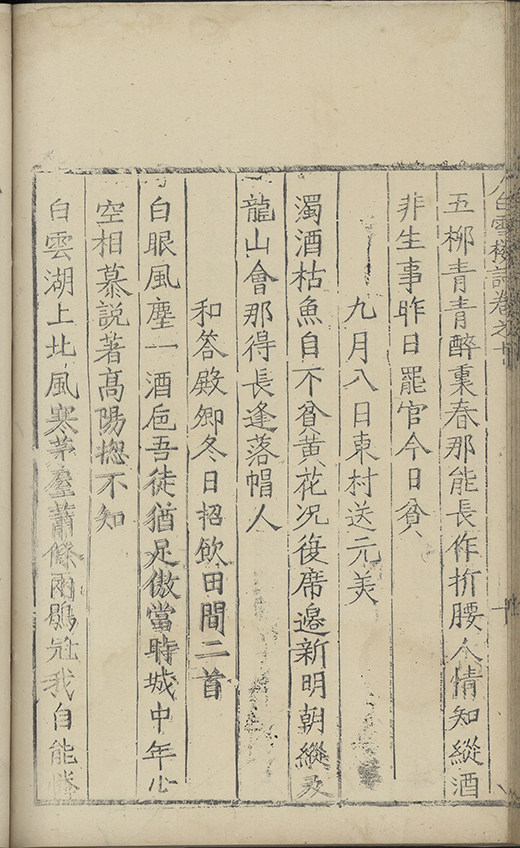 白雪樓詩卷之十
五栁青青醉裏春那能長作折腰人情知縱酒
非生事昨日罷官今日貧
九月八日東村送元美
濁酒枯魚自不貧黄花况復席邉新明朝縱及
龍山會那得長逢落帽人
和答殿卿冬日招飲田間二首
白眼風塵一酒巵吾徒猶足傲當時城中年少
空相慕説著髙陽揔不知
白雲湖上北風寒茅屋蕭條兩鶡冠我自能